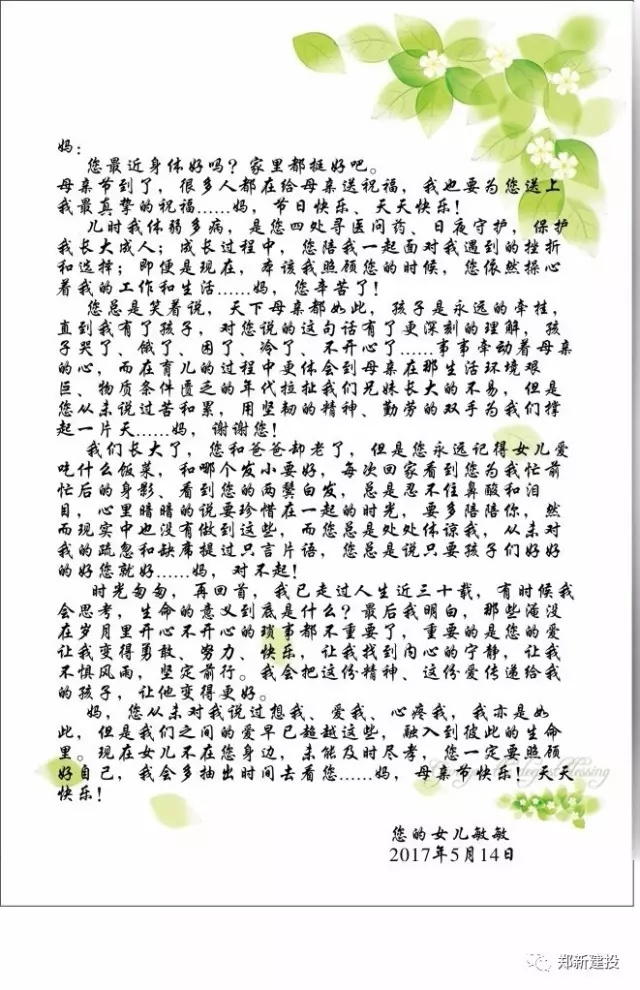 妈：
您最近身体好吗？家里都挺好吧。
母亲节到了，很多人都在给母亲送祝福，我也要为您送上
我最真挚的祝福……妈，节日快乐、天天快乐！
儿时我体弱多病，是您四处寻医问药、日夜守护，保护
我长大成人；成长过程中，您陪我一起面对我遇到的挫折
和选择；即便是现在，本该我照顾您的时候，您依然操心
着我的工作和生活……妈，您辛苦了！
您总是笑着说，天下母亲都如此，孩子是永远的牵挂，
直到我有了孩子，对您说的这句话有了更深刻的理解，孩
子哭了、饿了、困了、冷了、不开心了……事事牵动着母亲
的心，而在育儿的过程中更体会到母亲在那生活环境艰
巨、物质条件匮乏的年代拉扯我们兄妹长大的不易，但是
您从来说过苦和累，用坚韧的精神、勤劳的双手为我们撑
起一片天……妈，谢谢您！
我们长大了，您和爸爸却老了，但是您永远记得女儿爱
吃什么饭菜，和哪个发小要好，每次回家看到您为我忙前
忙后的身影、看到您的两鬓白发，总是忍不住鼻酸和泪
目，心里暗暗的说要珍惜在一起的时光，要多陪陪你，然
而现实中也没有做到这些，而您总是处处体谅我，从未对
我的疏忽和缺席提过只言片语，您总是说只要孩子们好好
的好您就好……妈，对不起！
时光匆匆，再回首，我已走过人生近三十载，有时候我
会思考，生命的意义到底是什么？最后我明白，那些淹没
在岁月里开心不开心的琐事都不重要了，重要的是您的爱
让我变得勇敢、努力、快乐，让我找到内心的宁静，让我
不惧风雨，坚定前行。我会把这份精神、这份爱传递给我
的孩子，让他变得更好。
妈，您从未对我说过想我、爱我、心疼我，我亦是如
此，但是我们之间的爱早已超越这些，融入到彼此的生命
里。现在女儿不在您身边，未能及时尽孝，您一定要照顾
好自己，我会多抽出时间去看您……妈，母亲节快乐！天天
快乐！
您的女儿敏敏
2017年5月14日
郑新建投